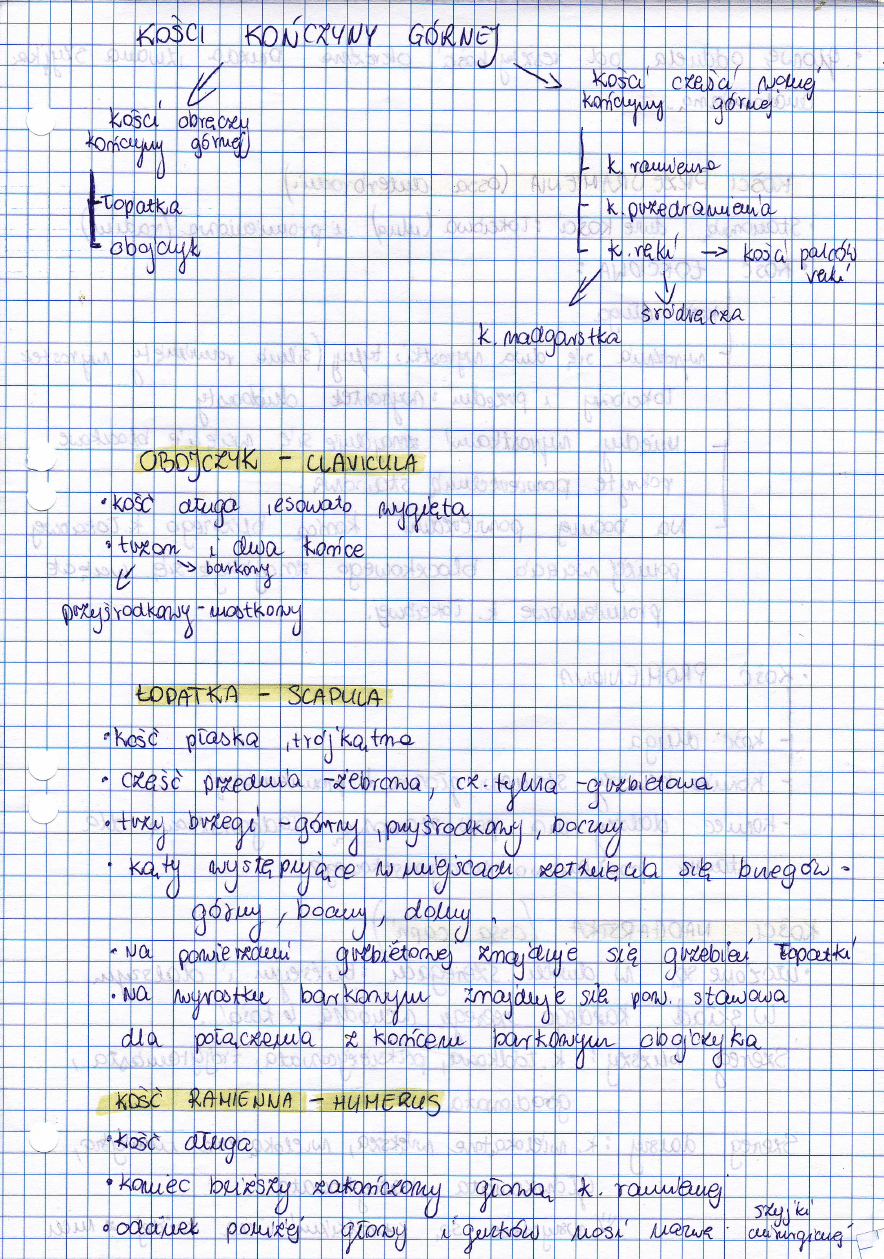 KOŚCI KOŃCZYNY GÓRNEJ
kości obręczy
kończyny górnej
łopatka
obojczyk
kości części wolnej
kończyny górnej
k. ramienna
k. przedramienia
k. ręki → kości palców
ręki
śródręcza
k. nadgarstka
OBOJCZYK – CLAVICULA
• kość długa, esowato wygięta
• trzon i dwa końce
barkowy
przyśrodkowy - mostkowy
ŁOPATKA – SCAPULA
• kość płaska, trójkątna
• część przednia - żebrowa, cz. tylna - grzbietowa
• trzy brzegi - górny, przyśrodkowy, boczny
• kąty występujące w miejscach zetknięcia się brzegów -
górny, boczny, dolny.
• na powierzchni grzbietowej znajduje się grzebień łopatki
• na wyrostku barkowym znajduje się pow. stawowa
dla połączenia z końcem barkowym obojczyka
KOŚĆ RAMIENNA – HUMERUS
• kość długa
• koniec bliższy zakończony głową k. ramiennej
• odcinek poniżej głowy i guzków nosi nazwę szyjki
chirurgicznej